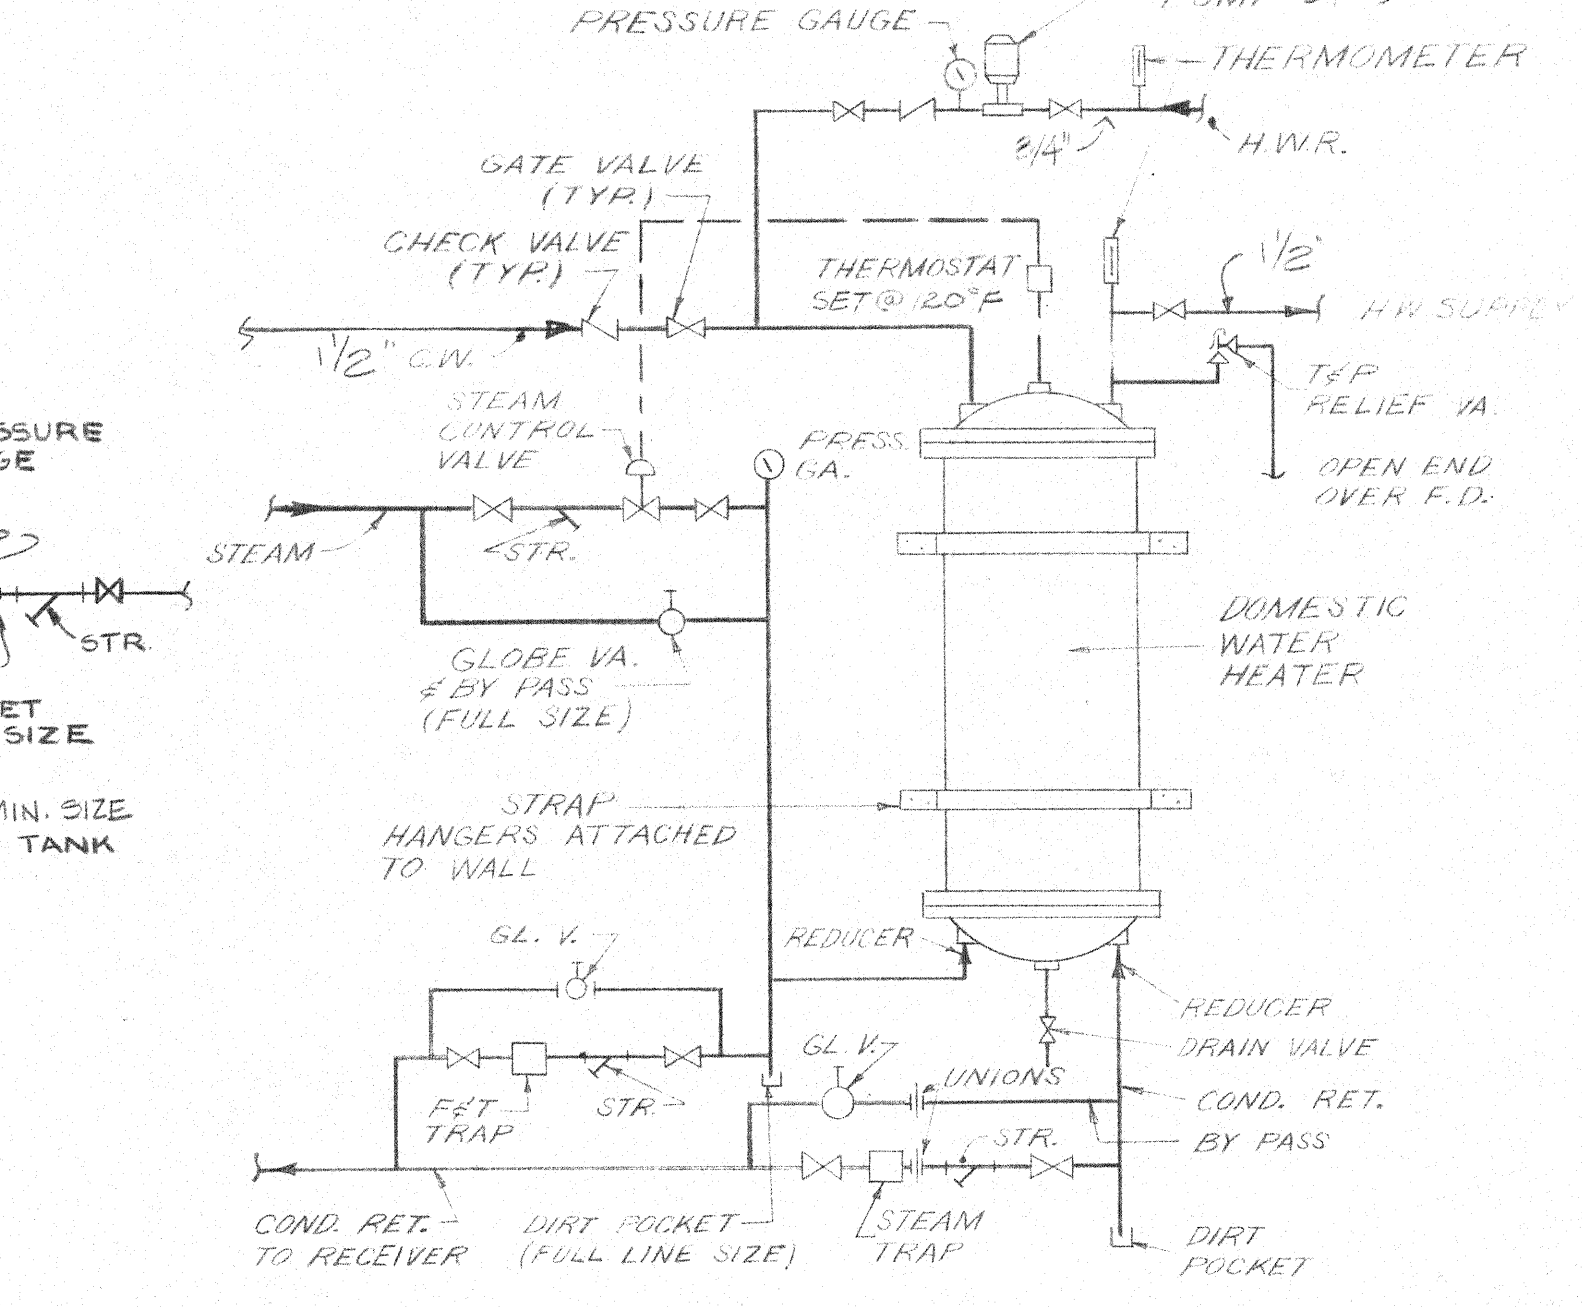 PRESSURE GAUGE
THERMOMETER
3/4"
H.W.R.
GATE VALVE
(TYP.)
CHECK VALVE
(TYP.)
THERMOSTAT
SET @ 120°F
1 1/2"
H.W. SUPPLY
1 1/2" C.W.
T&P
RELIEF VA.
STEAM
CONTROL
VALVE
PRESS.
GA.
OPEN END
OVER F.D.
STEAM
STR.
STR.
GLOBE VA.
& BY PASS
(FULL SIZE)
DOMESTIC
WATER
HEATER
SIZE
MIN. SIZE
TANK
STRAP
HANGERS ATTACHED
TO WALL
GL. V.
REDUCER
REDUCER
DRAIN VALVE
GL. V.
UNIONS
COND. RET.
BY PASS
F&T
TRAP
STR.
STR.
COND. RET.
TO RECEIVER
DIRT POCKET
(FULL LINE SIZE)
STEAM
TRAP
DIRT
POCKET